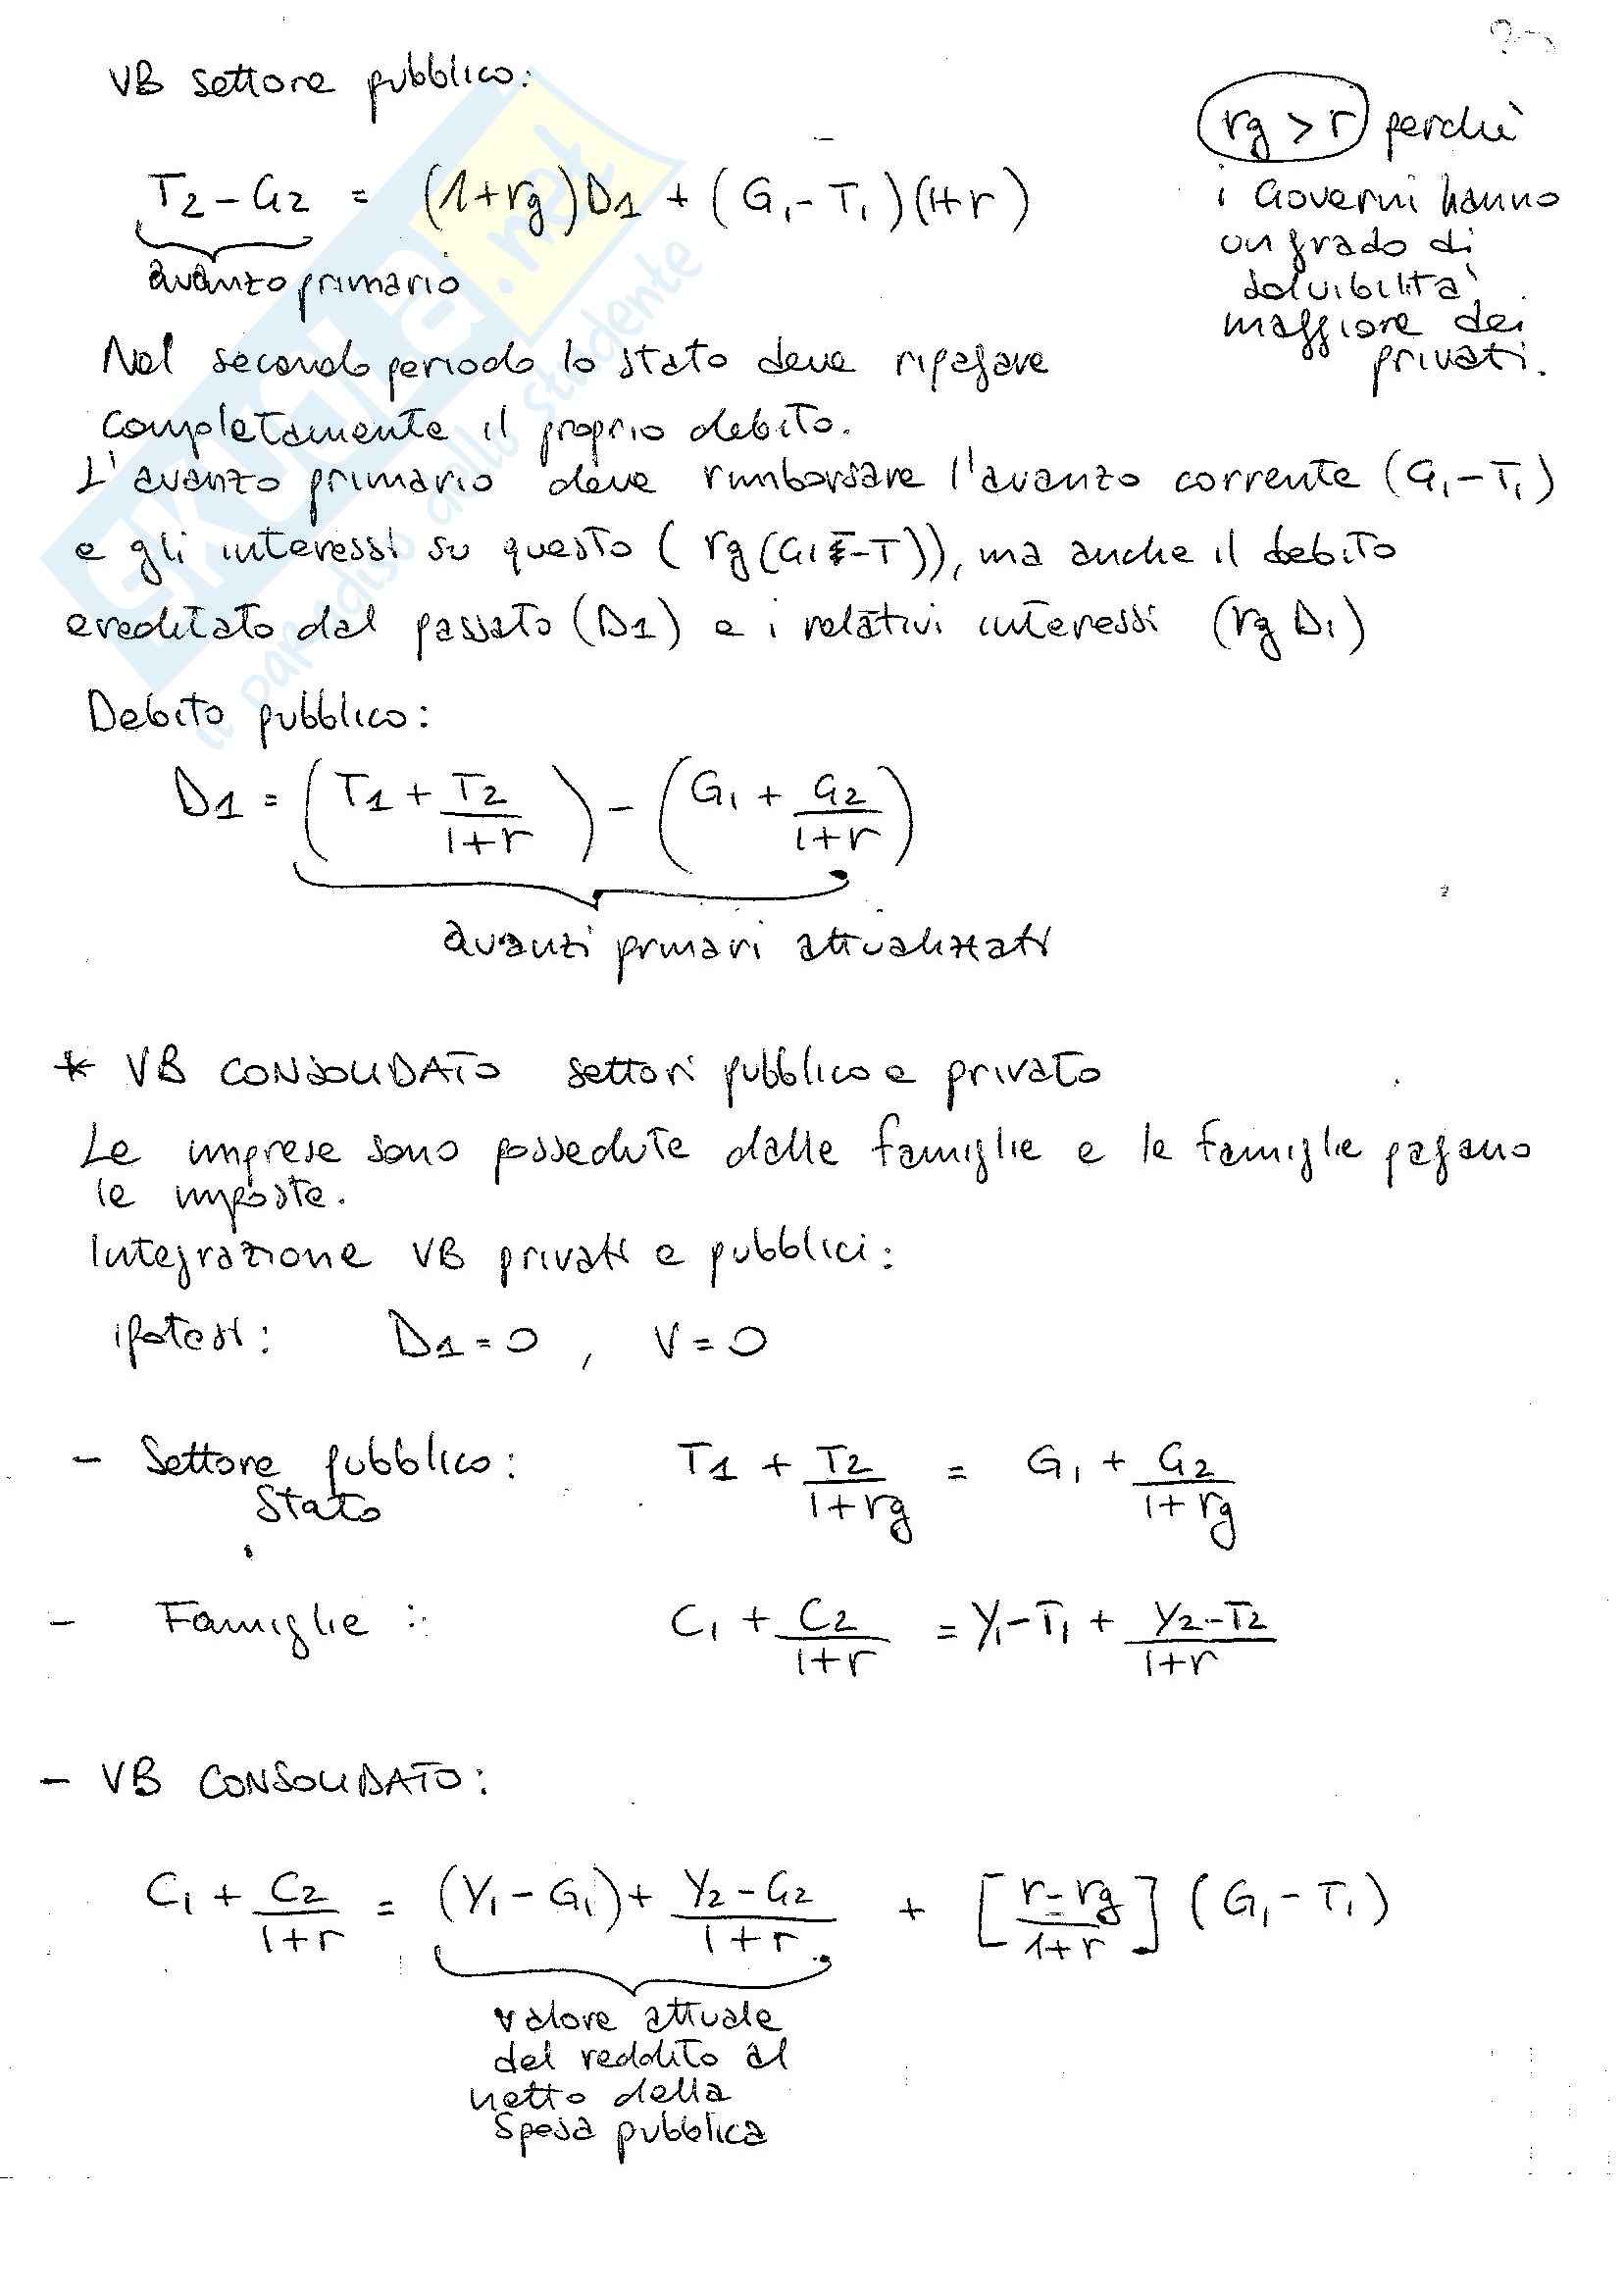 VB settore pubblico:
rg > r perchè
i Governi hanno
un grado di
solvibilità
maggiore dei
privati.
T2 - G2 = (1+rg)D1 + (G1 - T1)(1+r)
avanzo primario
Nel secondo periodo lo stato deve ripagare
completamente il proprio debito.
L'avanzo primario deve rimborsare l'avanzo corrente (G1 - T1)
e gli interessi su questo (rg(G1 - T)), ma anche il debito
ereditato dal passato (D1) e i relativi interessi (rg D1)
Debito pubblico:
D1 = (T1 + T2/(1+r)) - (G1 + G2/(1+r))
avanzi primari attualizzati
* VB CONSOLIDATO settori pubblico e privato
Le imprese sono possedute dalle famiglie e le famiglie pagano
le imposte.
Integrazione VB privati e pubblici:
ipotesi: D1 = 0, V = 0
- Settore pubblico: T1 + T2/(1+rg) = G1 + G2/(1+rg)
Stato
- Famiglie: C1 + C2/(1+r) = Y1 - T1 + (Y2 - T2)/(1+r)
- VB CONSOLIDATO:
C1 + C2/(1+r) = (Y1 - G1) + (Y2 - G2)/(1+r) + [(r - rg)/(1+r)] (G1 - T1)
valore attuale
del reddito al
netto della
spesa pubblica
SKUOLA.net
il paradiso dello studente